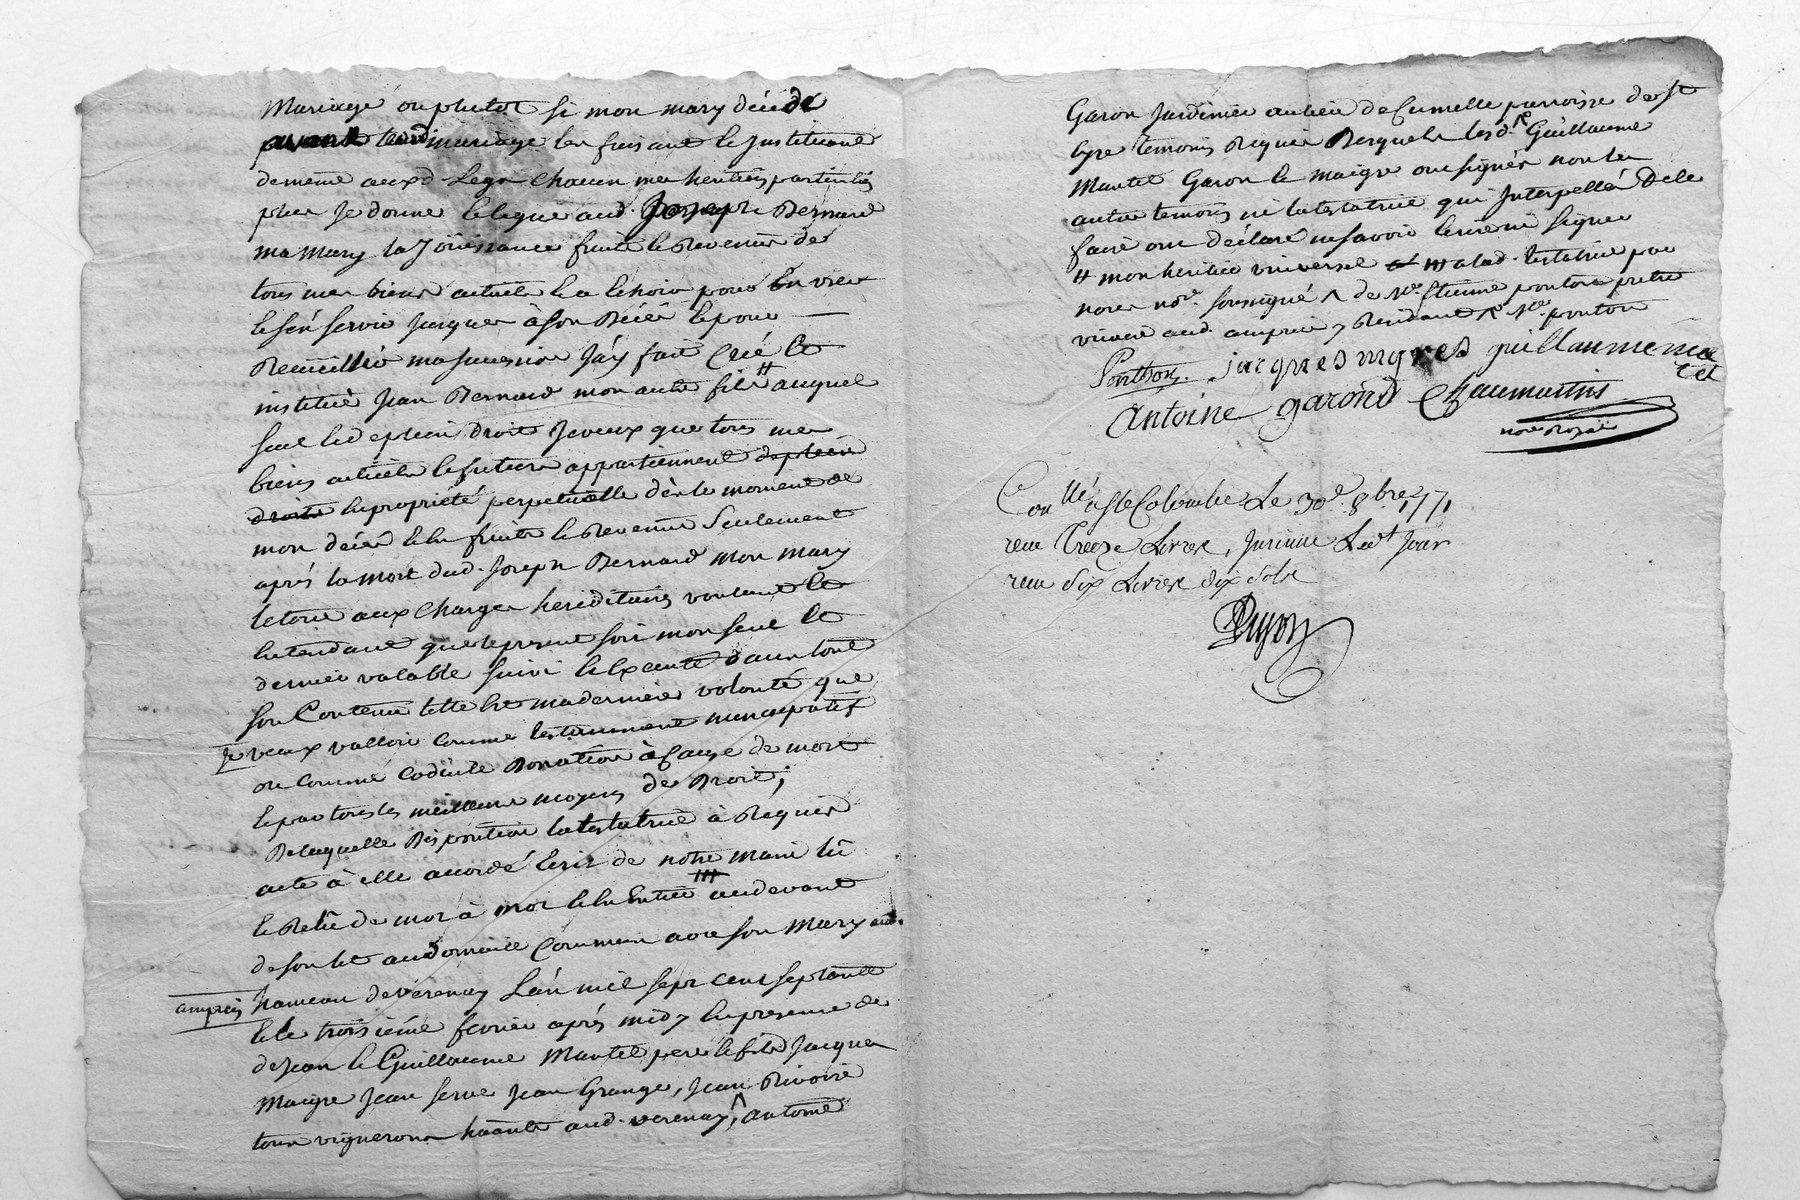 Mariage ou plutot si mon mary décéde
avant led. mariage les faisant & Instituant
de meme auxd. Legs chacun mes heritiers particuliers
plus Je donne & legue aud. Joseph Bernard
mon Mary la Jouissance fruits & Revenus de
tous mes biens actuels & a Echoir pour En User
& s'en servir jusques à son Décés & pour
Recueillir ma succession J'ay fait Créé &
institué Jean Bernard mon autre fils # auquel
seul & de plein Droit Je veux que tous mes
biens actuels & futurs appartiennent de plein
droit En propriété perpetuelle dès le moment de
mon décés & En fruits & Revenus Seulement
aprés la mort dud. Joseph Bernard mon mary
& tout aux charges hereditaires voulant &
Entendant que le present soit mon seul &
dernier valable suivi & Executé dans tout
son Contenu telle Est ma derniere volonté que
Je veux valloir comme testament nuncupatif
ou comme codicile Donation à Cause de mort
& par tous les meilleurs moyens de Droit;
De laquelle Disposition la testatrice à Requis
acte à elle accordé Ecrit de notre main lû
& Relû de mot à mot & En Entier audevant
de son lit au domicile Commun avec son Mary aud.
hameau de verenay L'an mil sept cent septante
ampuis
& le troisieme fevrier aprés midy En presence de
de Jean & Guillaume Mantel pere & fils Jacques
Maigre Jean serve Jean Grange, Jean Rivoire
tous vignerons ha'ants aud. verenay, ^ antoine
Garon Jardinier au lieu de Cumelle parroisse de st
Cyr temoins Requis Desquels lesd. Guillaume
Mantel Garon & maigre ont signés non les
autres temoins ni la testatrice qui Interpellés De le
faire ont déclaré ne savoir Ecrire ni signer
# mon heritier universel /// a lad. testatrice par
nous nore. soussigné ^ de Me. Etienne ponton pretre
vicaire aud. ampuis y Residant
Ponthon. jacques mgres guillaume mantel
Antoine garond Chaumartin
nore Royal
Conllé a Ste Colombe Le 30e. 8bre. 1771
reçu Treze Livres, Insinué Led.t Jour
reçu Six Livres dix sols